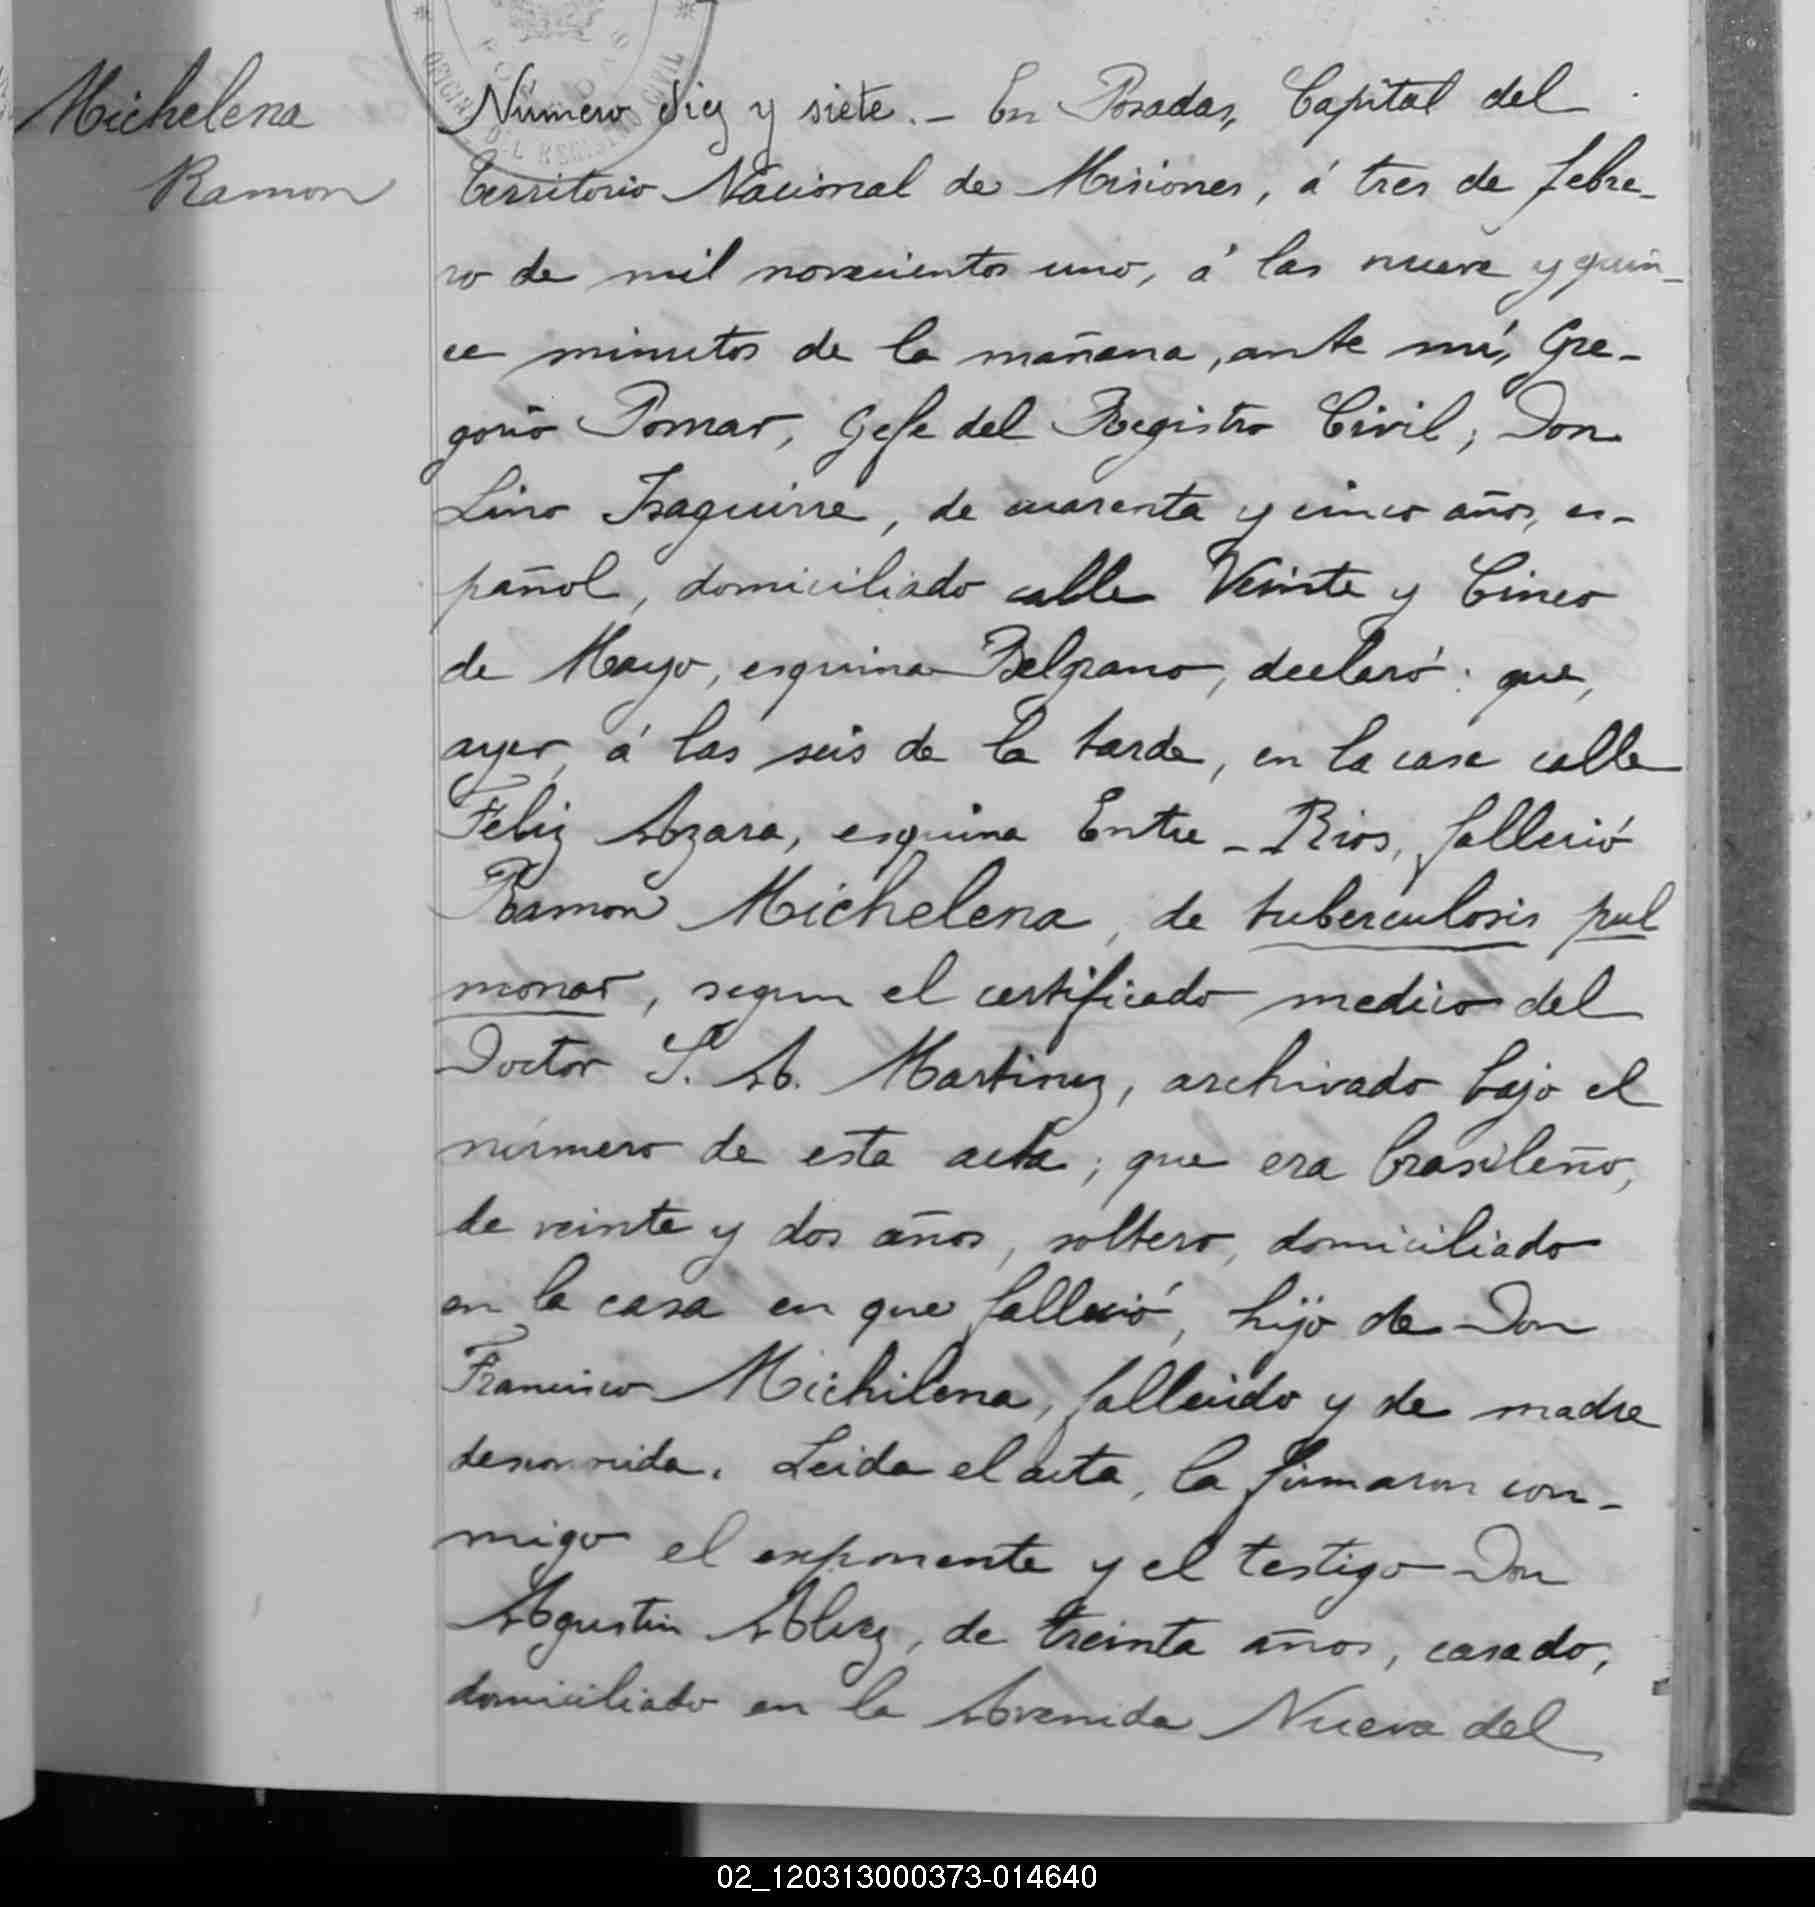 Michelena
Ramon
OFICINA DEL REGISTRO CIVIL
Número diez y siete.- En Posadas, Capital del
Territorio Nacional de Misiones, á tres de febre-
ro de mil novecientos uno, á las nueve y quin-
ce minutos de la mañana, ante mí, Gre-
gorio Pomar, Gefe del Registro Civil; Don
Lino Isaguirre, de cuarenta y cinco años, es-
pañol, domiciliado calle Veinte y Cinco
de Mayo, esquina Belgrano, declaró: que,
ayer, á las seis de la tarde, en la casa calle
Feliz Azara, esquina Entre-Rios, falleció
Ramon Michelena, de tuberculosis pul
monar, segun el certificado medico del
Doctor S. A. Martinez, archivado bajo el
número de esta acta; que era brasileño,
de veinte y dos años, soltero, domiciliado
en la casa en que falleció, hijo de Don
Francisco Michilena, fallecido y de madre
desconocida. Leida el acta, la firmaron con-
migo el exponente y el testigo Don
Agustin Alvez, de treinta años, casado,
domiciliado en la Avenida Nueva del
02_120313000373-014640